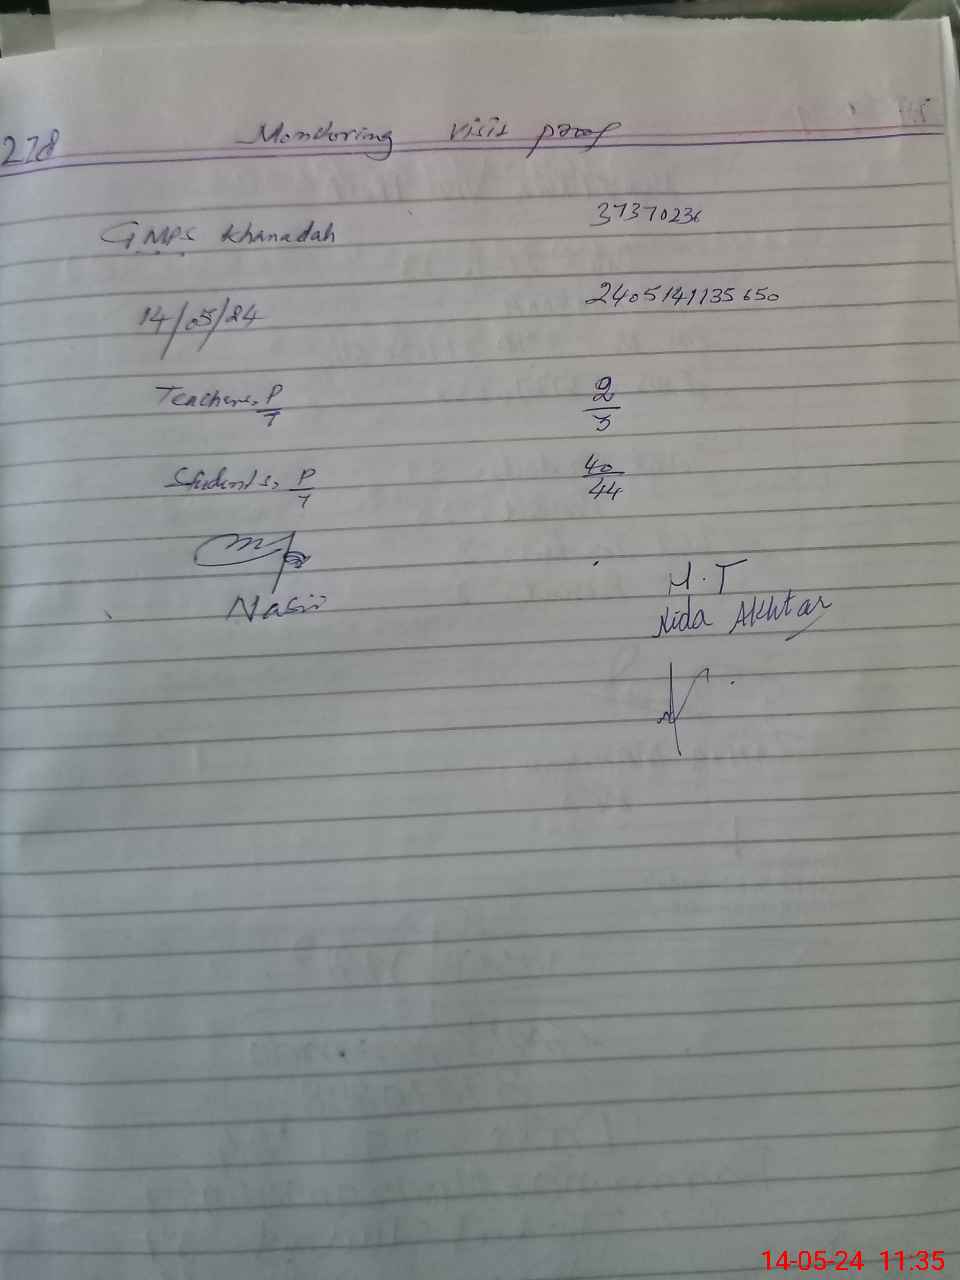 278
Monitoring visit proof
GMPS Khanadah 37370236
14/05/24 2405141135650
Teachers, P/T 2/3
Students, P/T 40/44
Nasir
H.T
Nida Akhtar
14-05-24 11:35